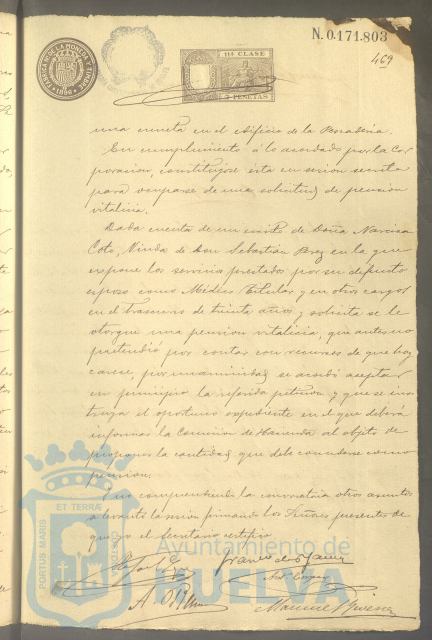 N. 0.171.803
469
FABRICA N. DE LA MONEDA Y TIMBRE
1896
11ª CLASE
PESETAS
una caseta en el edificio de la Pescaderia.
En cumplimiento á lo acordado por la Cor
poracion, constituyóse ésta en sesion secreta
para ocuparse de una solicitud de pension
vitalicia.
Dada cuenta de un escrito de Doña Narcisa
Coto, Viuda de Don Sebastian Perez en la que
expone los servicios prestados por su defunto
esposo como Médico titular y en otros cargos
en el trascurso de treinta años y solicita se le
otorgue una pension vitalicia, que antes no
pretendió por contar con recursos de que hoy
carece, por unanimidad se acordó aceptar
en principio la referida peticion y que se ins
truya el oportuno expediente en el que deberá
informar la Comision de Hacienda al objeto de
proponer la cantidad que debe concederse como
pension.
Y no comprendiendo la convocatoria otros asuntos
se levantó la sesion firmando los Señores presentes de
que yo el Secretario certifico.
Manuel
PORTUS MARIS ET TERRÆ CUSTODIA
Ayuntamiento de
HUELVA